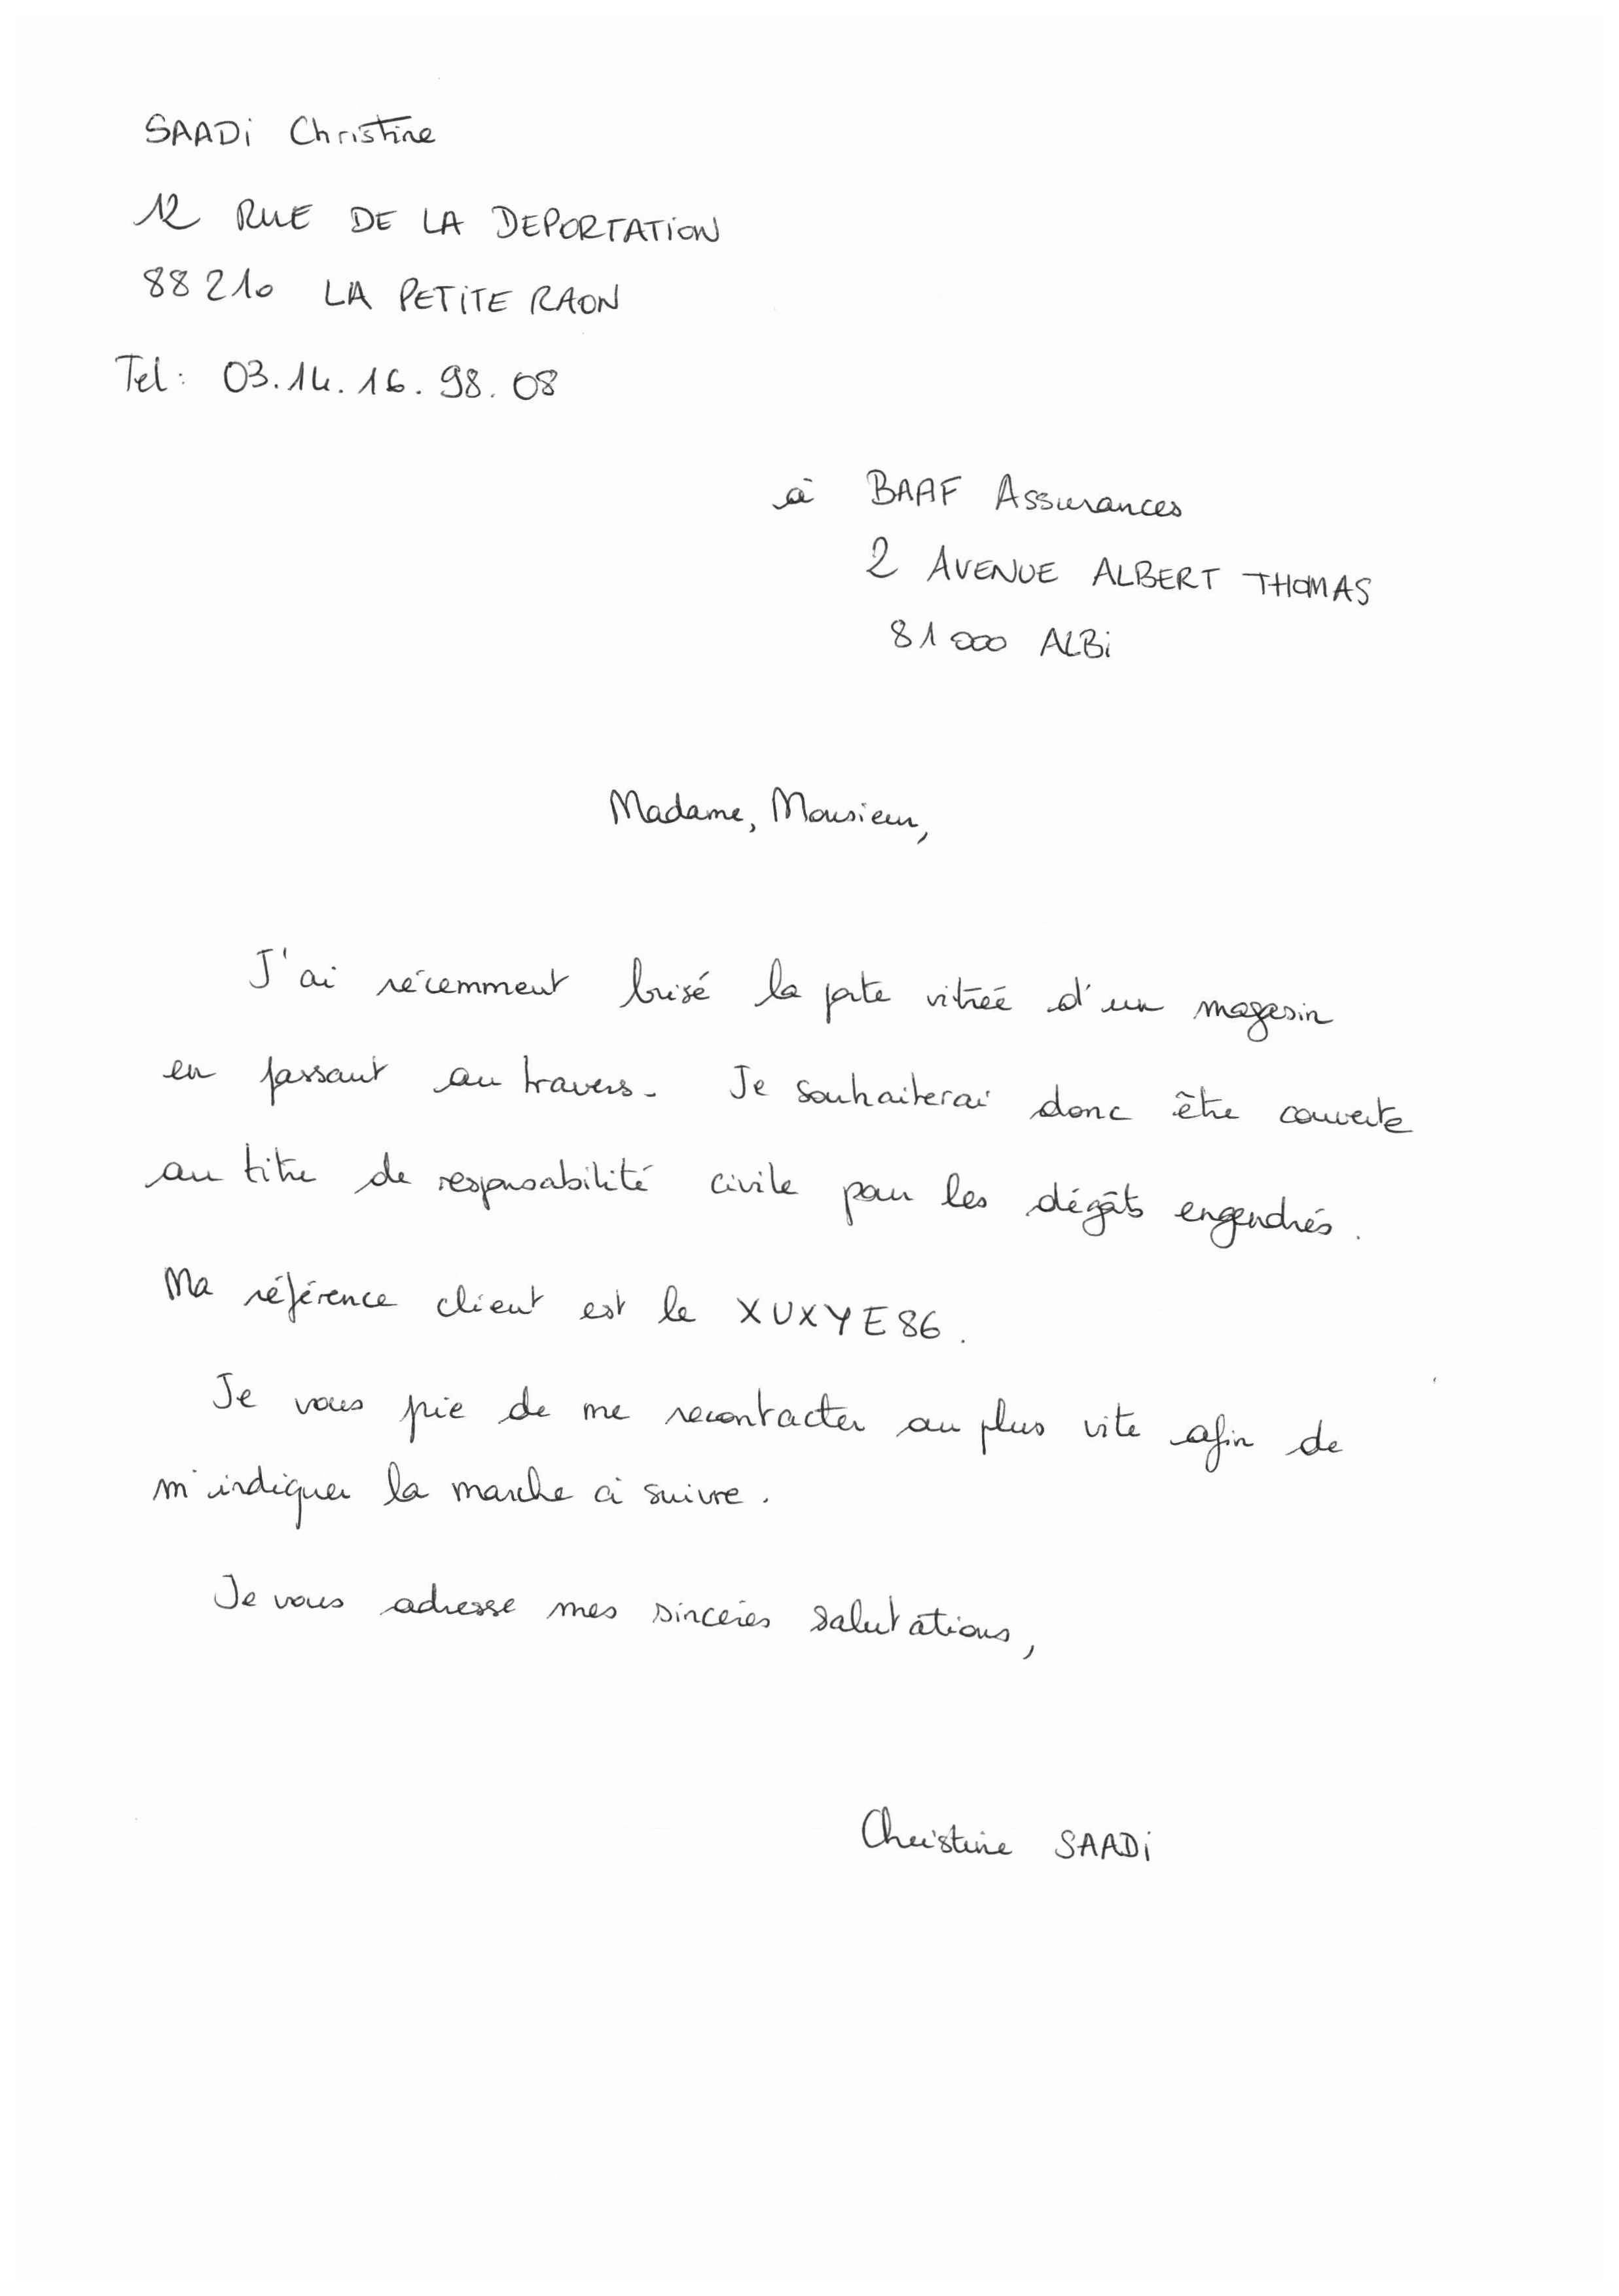 SAADi Christine
12 RUE DE LA DEPORTATiON
88210 LA PETiTE RAON
Tel: 03.14.16.98.08
à BAAF Assurances
2 AVENUE ALBERT THOMAS
81000 ALBi
Madame, Monsieur,
J'ai récemment brisé la porte vitrée d'un magasin
en passant au travers. Je souhaiterai donc être couverte
au titre de responsabilité civile pour les dégâts engendrés.
Ma référence client est le XUXYE86.
Je vous prie de me recontacter au plus vite afin de
m'indiquer la marche à suivre.
Je vous adresse mes sincères salutations,
Christine SAADi